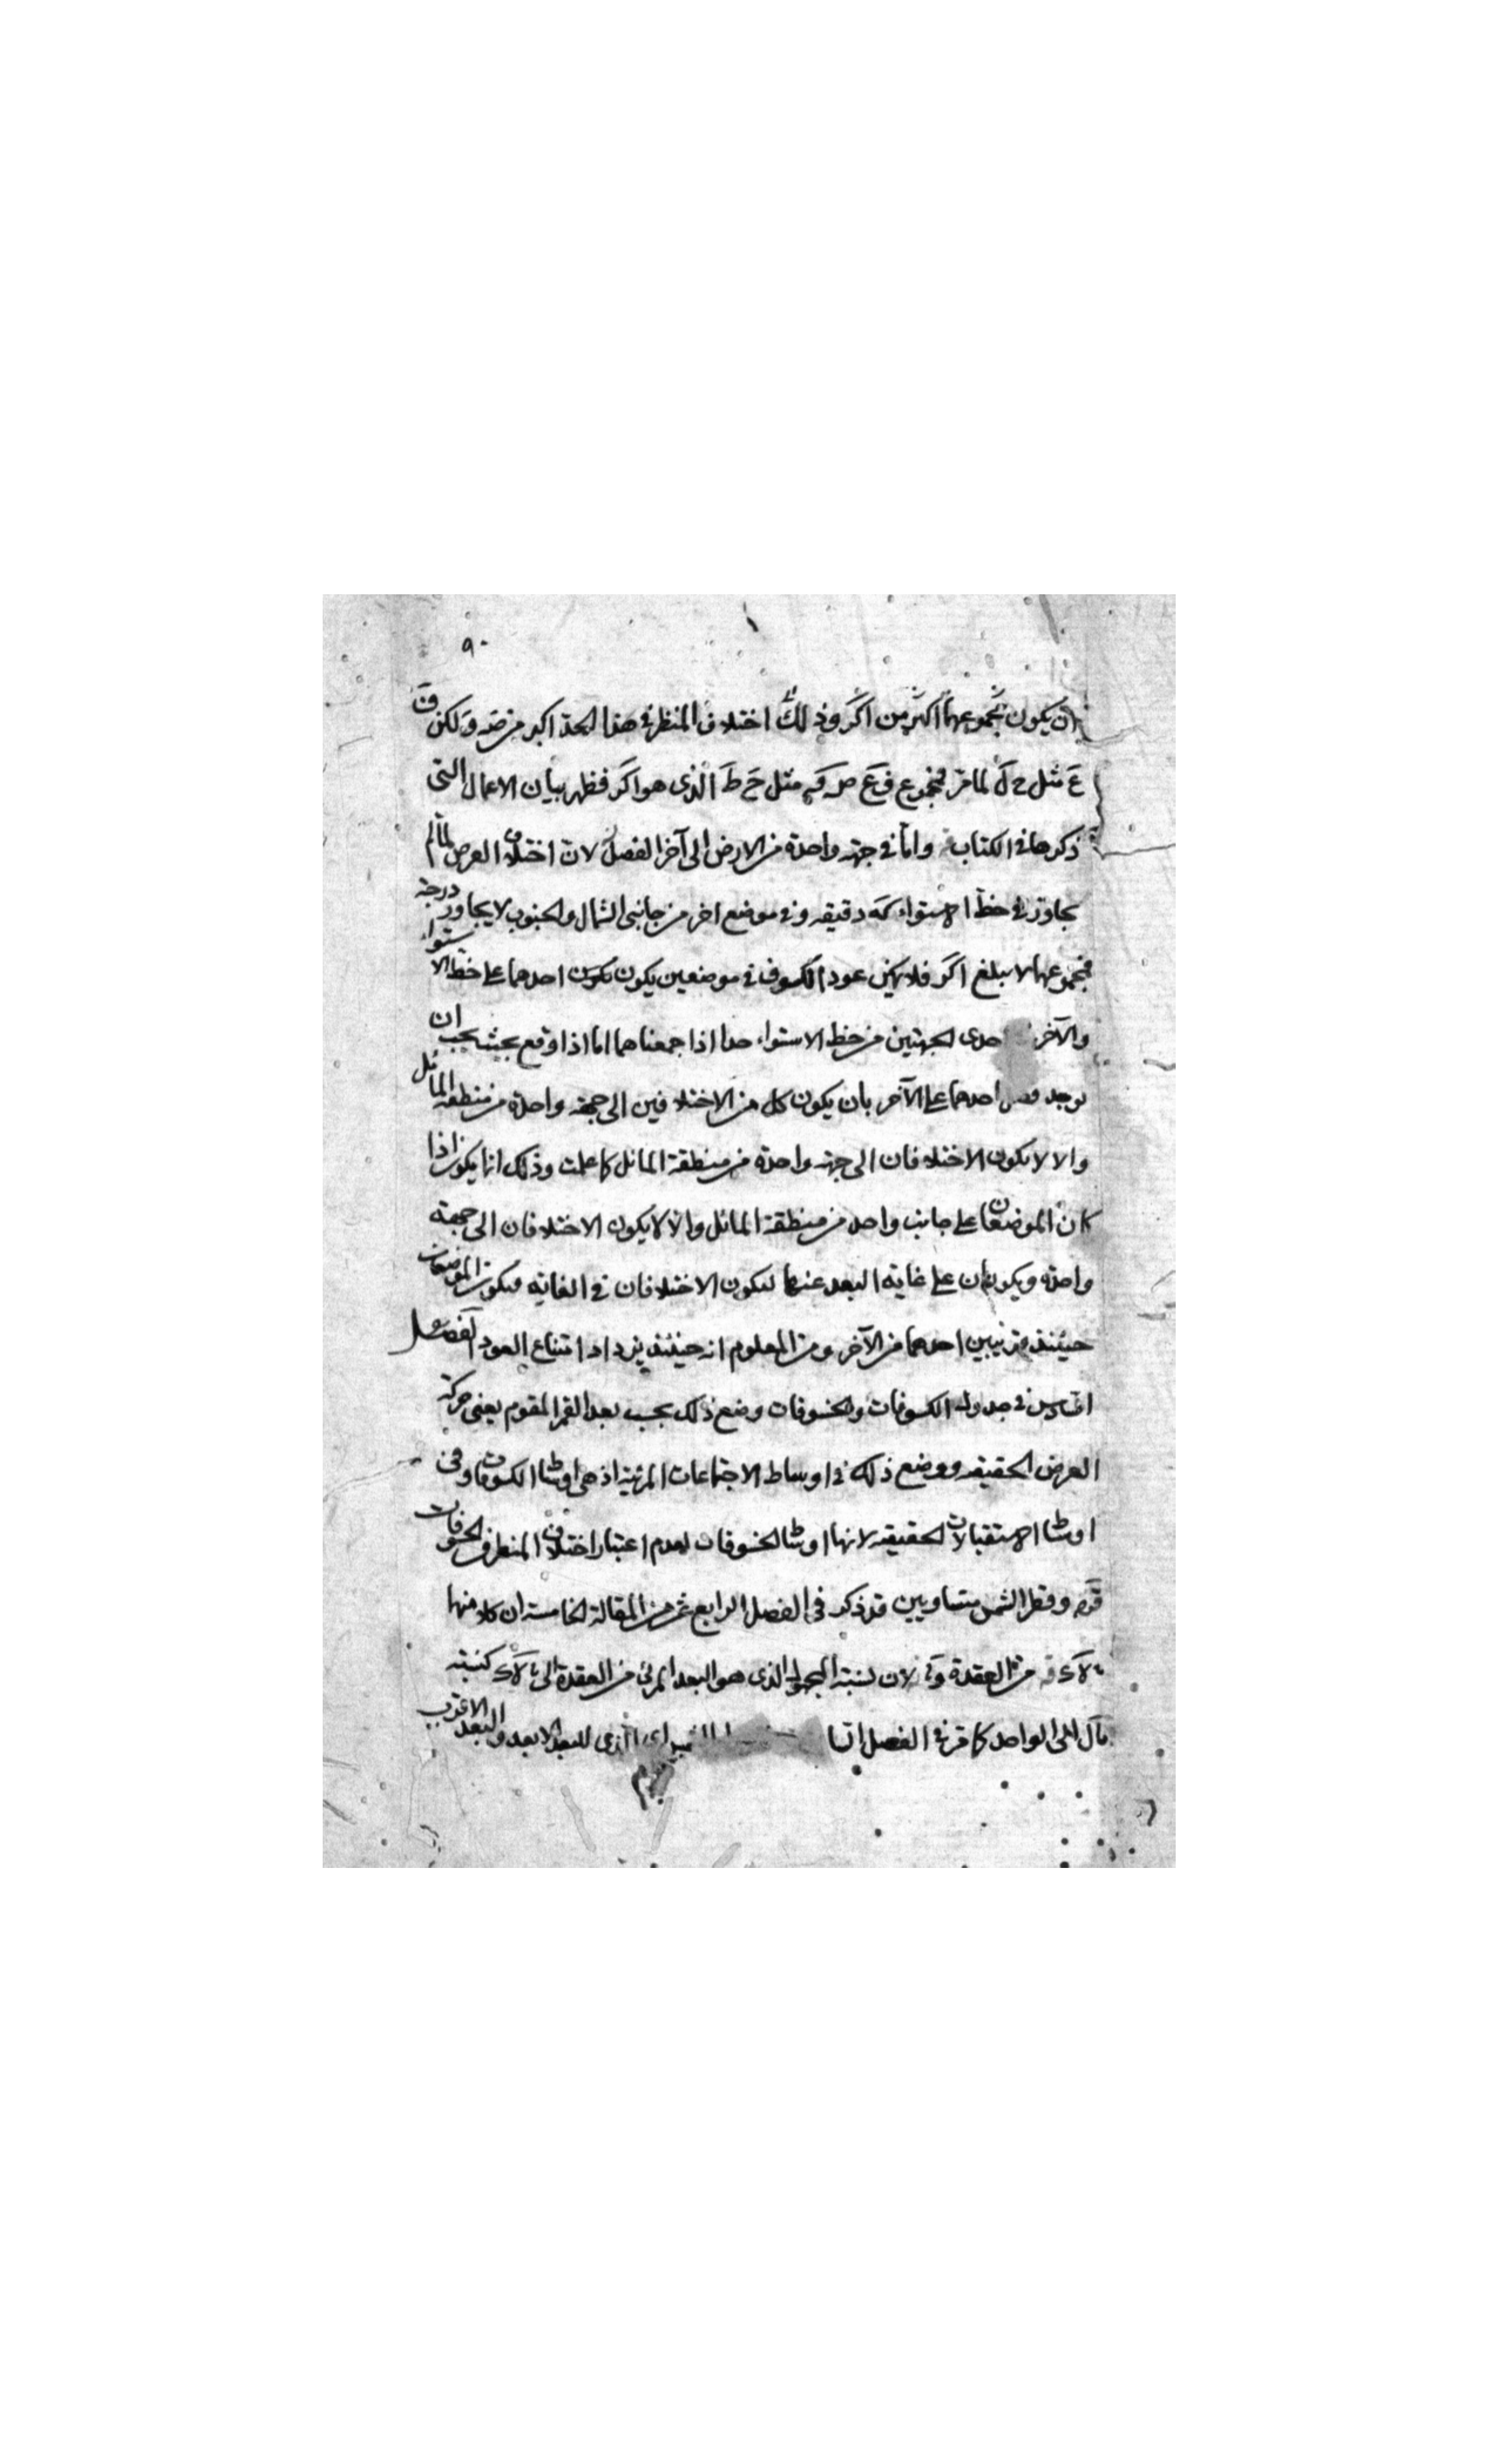 ٩٠
ان يكون مجموعهما اكثر من اكر وذلك اختلاف المنظر في هذا الحد اكبر من صه ولكن ق
ع مثل ح ل لما مر فمجموع ف ع صه مثل ح ط الذى هو اكر فظهر بيان الاعمال التى
ذكرها في الكتاب واما في جهة واحدة من الارض الى آخر الفصل لان اختلاف العرض لما لم
يجاوز في خط الاستواء كه دقيقه وفي موضع اخر من جانبى الشمال والجنوب لا يجاوز درجة
فمجموعهما لا يبلغ اكر فلا يمكن عود الكسوف في موضعين يكون يكون احدهما على خط الاستواء
والآخر احدى الجهتين من خط الاستواء هذا اذا جمعناهما اما اذا وقع بحيث يجب ان
يوجد فضل احدهما على الآخر بان يكون كل من الاختلافين الى جهة واحدة من منطقة المائل
والا لا يكون الاختلافان الى جهة واحدة من منطقة المائل كما علمت وذلك انما يكون اذا
كان الموضعان على جانب واحد من منطقة المائل والا لا يكون الاختلافان الى جهة
واحدة ويكونان على غاية البعد عنها ليكون الاختلافان في الغاية فيكون الموضعان
حينئذ قريبين احدهما من الآخر ومن المعلوم انه حينئذ يزداد امتناع العود الفصل
السادس في جدول الكسوفات والخسوفات وضع ذلك بحسب بعد القمر المقوم يعنى حركة
العرض الحقيقه ووضع ذلك في اوساط الاجتماعات المرئية اذ هى اوساط الكسوفات وفى
اوساط الاستقبالات الحقيقه لانها اوساط الخسوفات لعدم اعتبار اختلاف المنظر في الخسوفات
قوله وقطر الشمس متساويين قد ذكر في الفصل الرابع عشر من المقالة الخامسة ان كلا منهما
من العقدة لان نسبة المجهول الذى هو البعد المرئى من العقدة الى كنسبة
الى الواحد كما مر في الفصل اى الذى للبعد الابعد والبعد الاقرب